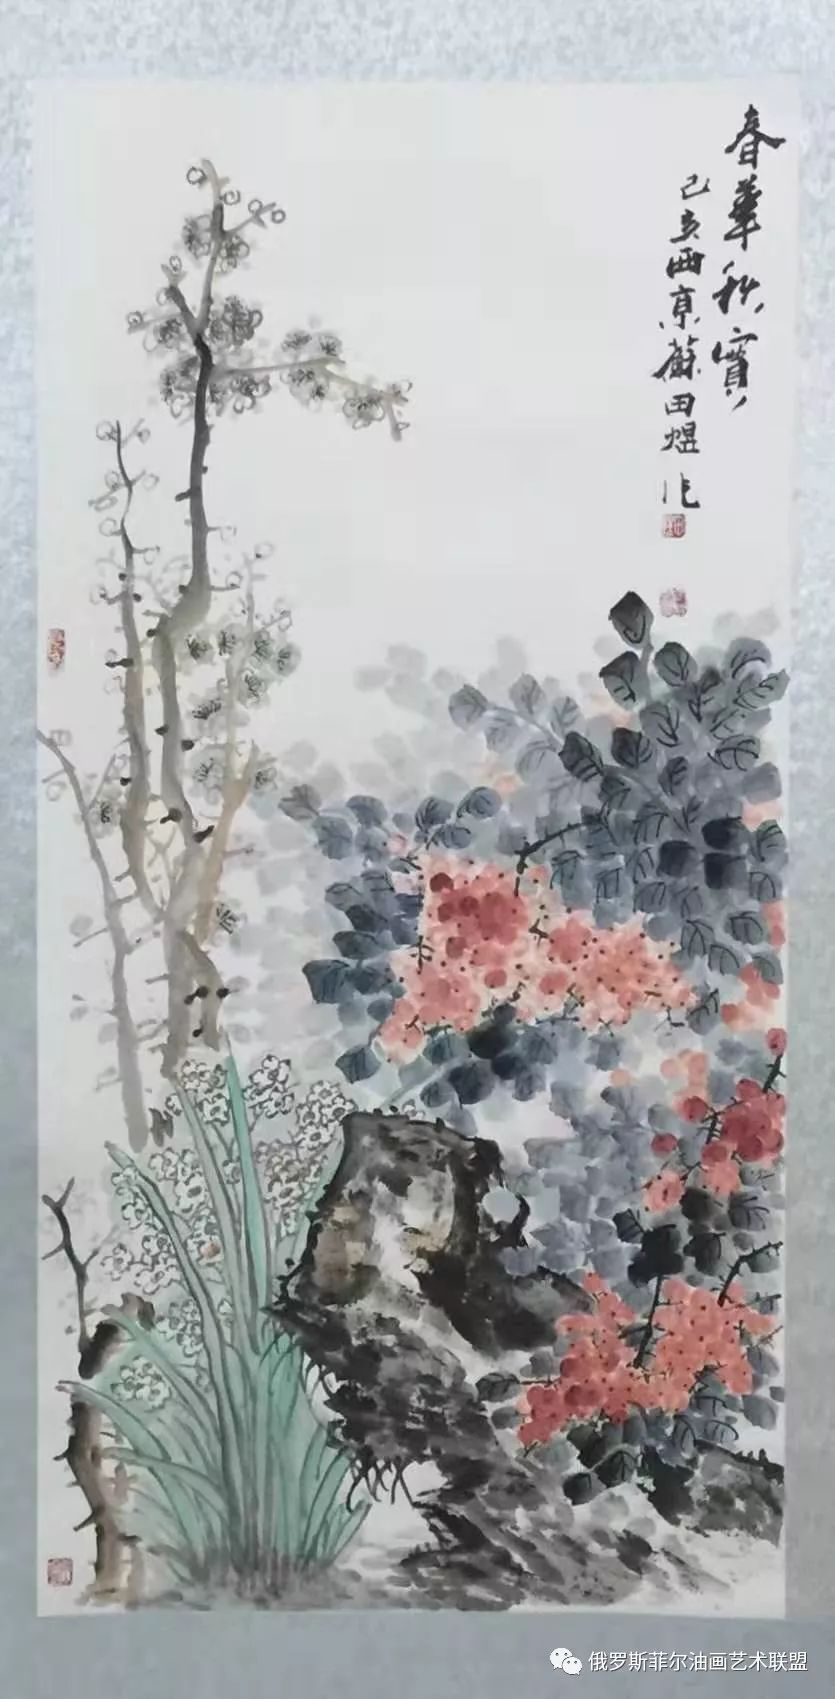 春華秋實
己亥西京蘇田煜作
俄罗斯菲尔油画艺术联盟